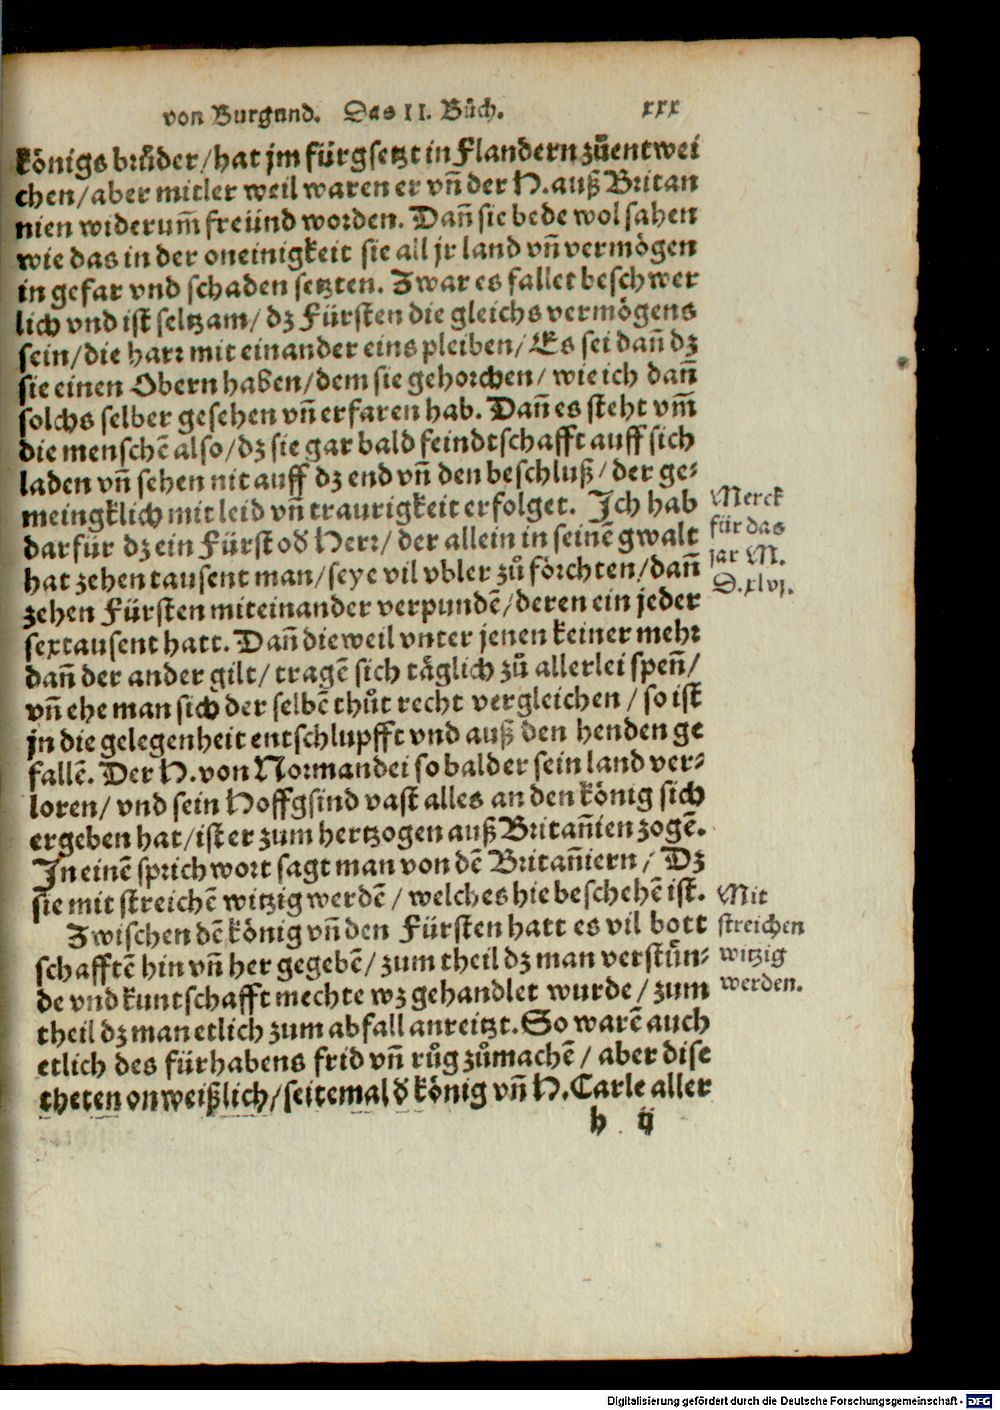 von Burgund. Das II. Bůch. xxx
königs brůder / hat jm fürgsetzt in Flandern zůentwei
chen / aber mitler weil waren er vñ der H. auß Britan
nien widerum̃ freünd worden. Dañ sie bede wol sahen
wie das in der oneinigkeit sie all jr land vñ vermögen
in gefar vnd schaden setzten. Zwar es fallet beschwer
lich vnd ist seltzam / dz Fürsten die gleichs vermögens
sein / die harr mit einander eins pleiben / Es sei dañ dz
sie einen Obern haben / dem sie gehorchen / wie ich dañ
solchs selber gesehen vñ erfaren hab. Dañ es steht vm̃
die menschẽ also / dz sie gar bald feindtschafft auff sich
laden vñ sehen nit auff dz end vñ den beschluß / der ge⸗
meingklich mit leid vñ traurigkeit erfolget. Ich hab
darfür dz ein Fürst od̃ Herr / der allein in seinẽ gwalt
hat zehen tausent man / seye vil vbler zů förchten / dañ
zehen Fürsten miteinander verpundẽ / deren ein jeder
sextausent hatt. Dañ dieweil vnter jenen keiner mehr
dañ der ander gilt / tragẽ sich täglich zů allerlei speñ /
vñ ehe man sich der selbẽ thůt recht vergleichen / so ist
jn die gelegenheit entschlupfft vnd auß den henden ge
fallẽ. Der H. von Normandei so bald er sein land ver⸗
loren / vnd sein Hoffgsind vast alles an den könig sich
ergeben hat / ist er zum hertzogen auß Britañien zogẽ.
In einẽ sprichwort sagt man von dẽ Britañiern / Dz
sie mit streichẽ witzig werdẽ / welches hie beschehẽ ist.
Zwischen dẽ könig vñ den Fürsten hatt es vil bott
schafftẽ hin vñ her gegebẽ / zum theil dz man verstün⸗
de vnd kuntschafft mechte wz gehandlet wurde / zum
theil dz man etlich zum abfall anreitzt. So warẽ auch
etlich des fürhabens frid vñ růg zůmachẽ / aber dise
theten onweißlich / seitemal d̃ könig vñ H. Carle aller
h ij
Merck
für das
jar M.
D. xlvj.
Mit
streichen
witzig
werden.
Digitalisierung gefördert durch die Deutsche Forschungsgemeinschaft - DFG